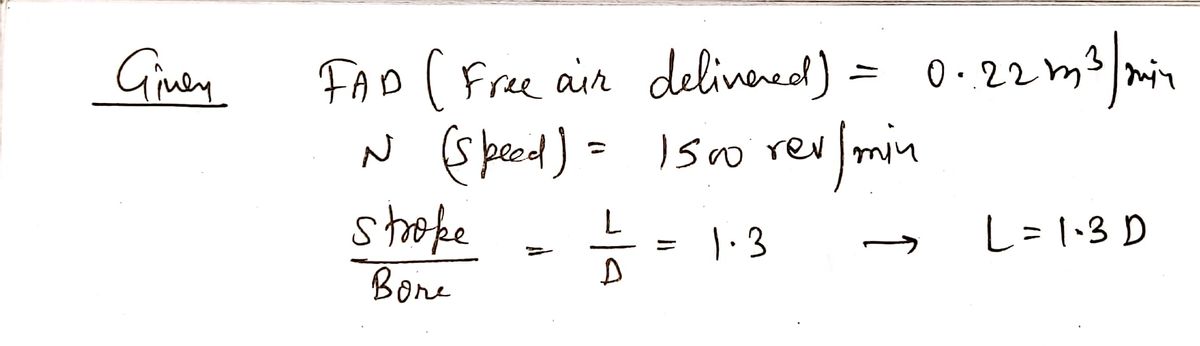 Given FAD (Free air delivered) = 0.22 m³/min
N (Speed) = 1500 rev/min
Stroke/Bore = L/D = 1.3 → L = 1.3 D